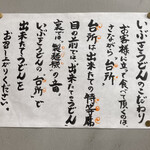 いぶきうどんのこだわり
お客様に立って食べて頂くのは、
さながら台所!
台所は出来たての特等席
目の前では、出来たてうどん
裏では、製麺機の音。
いぶきうどんの〝台所〟で
出来たてうどんを
お召し上がりください。